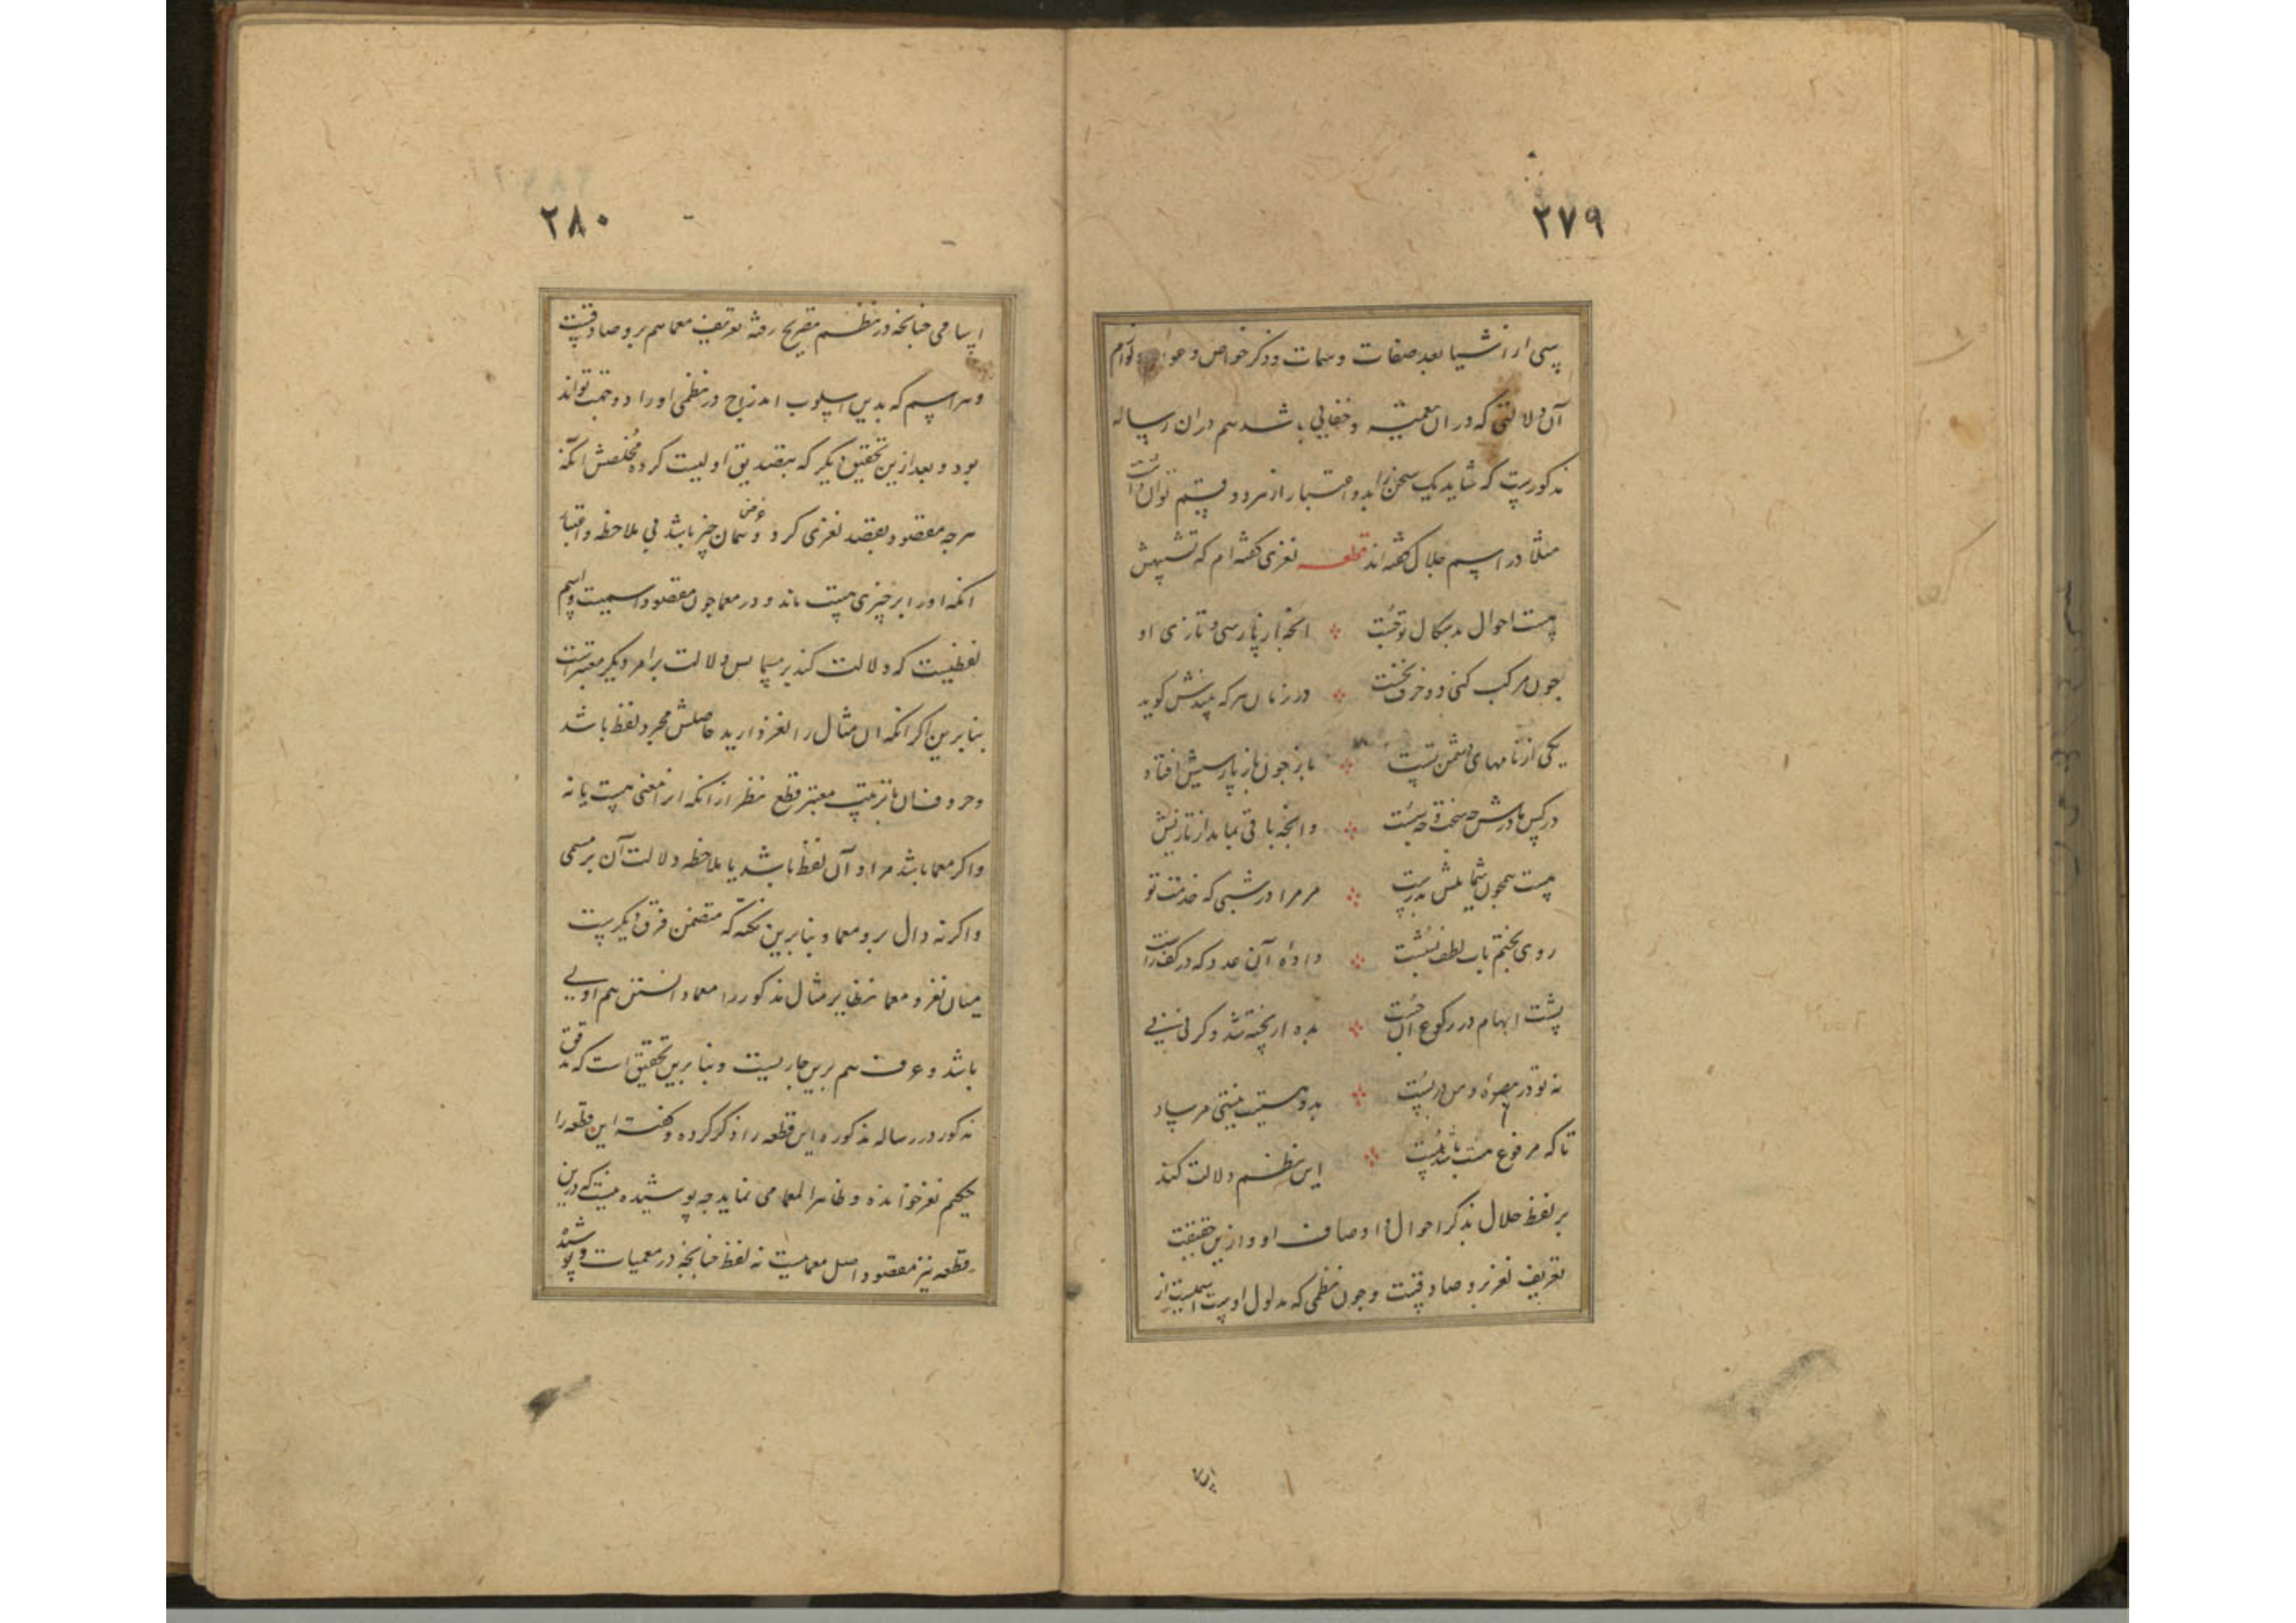 ۲۷۹
سی از اشیا بعد صفات و سمات و ذکر خواص و
آن دلالتی که در ان و خفایی باشد هم دران رساله
مذکورست که شاید یک سخن را بدو اعتبار از هر دو قسم توان داشت
مثلا در اسم جلال گفته اند قطعه لغزی گفته ام که تشبیهش
هست احوال بدسکال توجست انجه از پارسی و تازی او
چون مرکب کنی دو حرف نخست در زمان هر که بیندش کوید
یکی از نامهای دشمن تست باز چون باز پارسیش افتاد
وانجه باقی بماند از تازیش
هست همچون شمایلش بدرست مر مرا در شبی که خدمت تو
روی بختم باب لطف بشست داده آن عدد که در کف راست
پشت ابهام در رکوع ان جست بده ار پخته شد و کر نی نی
نه تو در بصره و من در بست بدو بیتی هر ساد
تا که مرفوع هست باشد این نظم دلالت کند
بر لفظ جلال بذکر احوال و اوصاف او و ازین حیثیت
تعریف لغز برو صادقست و چون نظمی که مدلول او اسمیست از
۲۸۰
اسامی چنانچه در نظم تصریح رفته تعریف معما هم برو صادقست
و هر اسم که بدین اسلوب اندراج در نظمی او را دو جهت تواند
بود و بعد ازین تحقیق دیگر که بتصدیق اولیست کرده مخلصش انکه
هرچه مقصود بقصد لغزی کرد و غرض همان چیز باشد بی ملاحظه و اعتبار
انکه او را بر چیزی هست ماند و در معما چون مقصود اسمیست و اسم
لفظیست که دلالت کند بر مسما پس دلالت بر امر دیکر معتبرست
بنابرین اکر انکه ان مثال را لغز دارید حاصلش مجرد لفظ باشد
و حروف ان با ترتیب معتبر قطع نظر از انکه انرا معنی هست یا نه
و اکر معما باشد مراد آن لفظ باشد با ملاحظه دلالت آن بر مسمی
و اکر نه دال برو معما و بنابرین نکته که متضمن فرق دیکرست
میان لغز و معما نظایر مثال مذکور را معما دانستن هم اولی
باشد و عرف هم برین جاریست و بنابرین تحقیق است که مدقق
مذکور در رساله مذکوره این قطعه را ذکر کرده و گفته این قطعه را
لغز خوانده و ظاهرا معما می نماید چه پوشیده نیست که درین
قطعه نیز مقصود اصل معماست نه لفظ چنانچه در معمیات و پوشیده